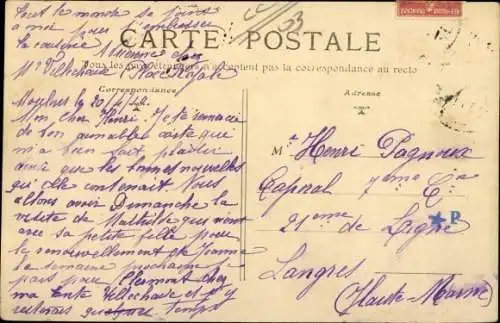 Tout le monde se joins
a moi pour t'embrasser
Ta cousine
Mr Place Royale
CARTE POSTALE
Tous les pays étrangers n'acceptent pas la correspondance au recto
Correspondance
Adresse
Moulins le 20
Mon cher Henri Je te remercie
de ton aimable carte que
m'a bien fait plaisir
ainsi que les bonnes nouvelles
qu'elle contenait Nous
allons avoir Dimanche la
visite de Mathilde qui vient
avec sa petite fille pour
le renouvellement de Jeanne
la semaine prochaine je
pars pour Clermont chez
ma tante et j'y
resterais quelque temps
Mr Henri Pagnoux
Caporal 7eme Cie
21eme de Ligne
Langres
(Haute-Marne)